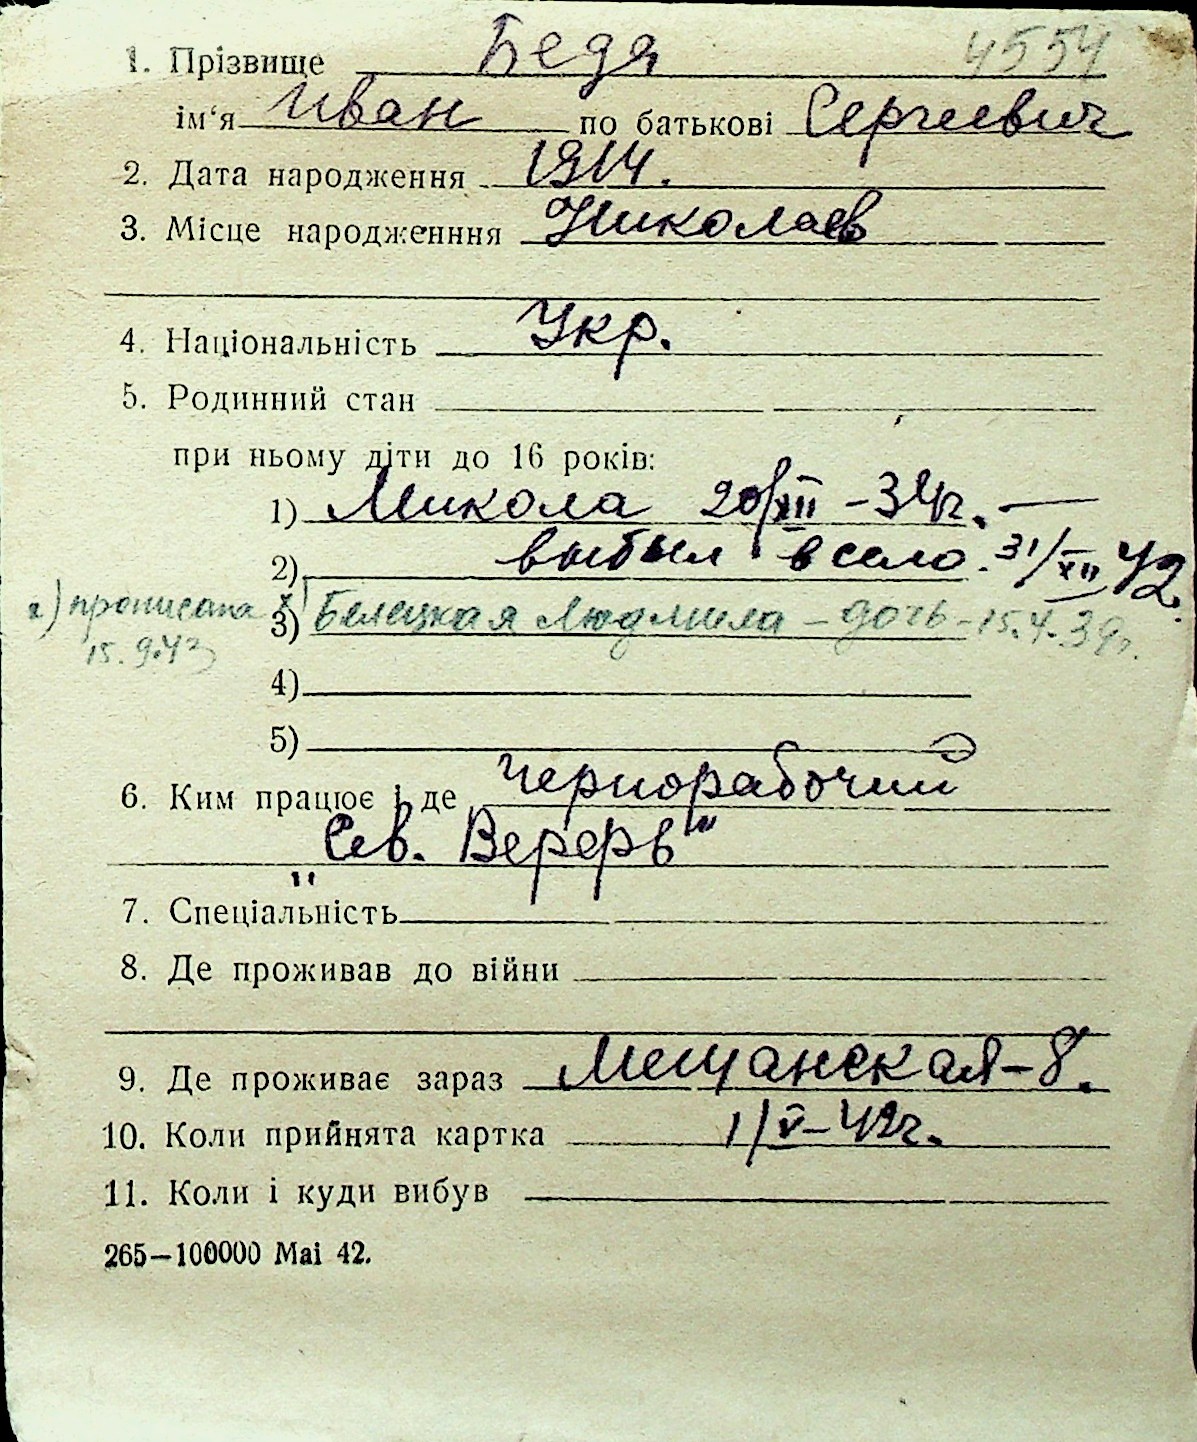 1. Прізвище Бедя 4554
ім‘я Иван по батькові Сергеевич
2. Дата народження 1914.
3. Місце народженння Николаев
4. Національність Укр.
5. Родинний стан
при ньому діти до 16 років:
1) Микола 20/XII – 34г. —
2) выбыл в село. 31/XII 42.
2) прописана 3) Белецкая Людмила – дочь – 15.4.39г.
15.9.43
4)
5)
6. Ким працює і де чернорабочий
„Сев. Верерь“
7. Спеціальність
8. Де проживав до війни
9. Де проживає зараз Мещанская – 8.
10. Коли прийнята картка 1/V – 42г.
11. Коли і куди вибув
265—100000 Маі 42.